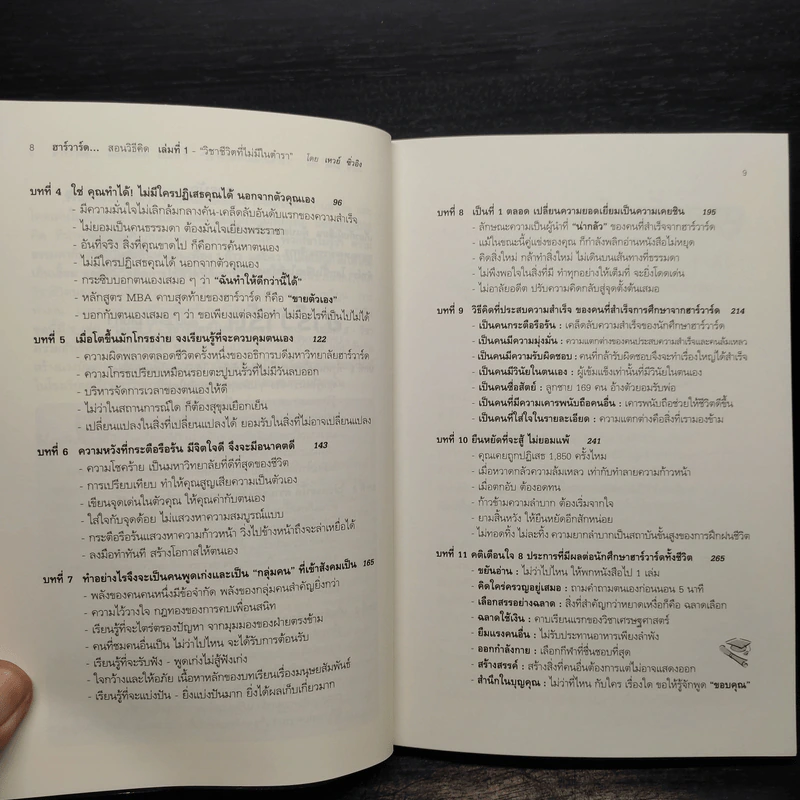 8 ฮาร์วาร์ด... สอนวิธีคิด เล่มที่ 1 - "วิชาชีวิตที่ไม่มีในตำรา" โดย เหวย์ ซิ่วอิง
บทที่ 4 ใช่ คุณทำได้! ไม่มีใครปฏิเสธคุณได้ นอกจากตัวคุณเอง 96
- มีความมั่นใจไม่เลิกล้มกลางคัน-เคล็ดลับอันดับแรกของความสำเร็จ
- ไม่ยอมเป็นคนธรรมดา ต้องมั่นใจเยี่ยงพระราชา
- อันที่จริง สิ่งที่คุณขาดไป ก็คือการค้นหาตนเอง
- ไม่มีใครปฏิเสธคุณได้ นอกจากตัวคุณเอง
- กระซิบบอกตนเองเสมอ ๆ ว่า "ฉันทำให้ดีกว่านี้ได้"
- หลักสูตร MBA คาบสุดท้ายของฮาร์วาร์ด ก็คือ "ขายตัวเอง"
- บอกกับตนเองเสมอ ๆ ว่า ขอเพียงแต่ลงมือทำ ไม่มีอะไรที่เป็นไปไม่ได้
บทที่ 5 เมื่อโตขึ้นมักโกรธง่าย จงเรียนรู้ที่จะควบคุมตนเอง 122
- ความผิดพลาดตลอดชีวิตครั้งหนึ่งของอธิการบดีมหาวิทยาลัยฮาร์วาร์ด
- ความโกรธเปรียบเหมือนรอยตะปูบนรั้วที่ไม่มีวันลบออก
- บริหารจัดการเวลาของตนเองให้ดี
- ไม่ว่าในสถานการณ์ใด ก็ต้องสุขุมเยือกเย็น
- เปลี่ยนแปลงในสิ่งที่เปลี่ยนแปลงได้ ยอมรับในสิ่งที่ไม่อาจเปลี่ยนแปลง
บทที่ 6 ความหวังที่กระตือรือร้น มีจิตใจดี จึงจะมีอนาคตดี 143
- ความโชคร้าย เป็นมหาวิทยาลัยที่ดีที่สุดของชีวิต
- การเปรียบเทียบ ทำให้คุณสูญเสียความเป็นตัวเอง
- เขียนจุดเด่นในตัวคุณ ให้คุณค่ากับตนเอง
- ใส่ใจกับจุดด้อย ไม่แสวงหาความสมบูรณ์แบบ
- กระตือรือร้นแสวงหาความก้าวหน้า วิ่งไปข้างหน้าถึงจะล่าเหยื่อได้
- ลงมือทำทันที สร้างโอกาสให้ตนเอง
บทที่ 7 ทำอย่างไรจึงจะเป็นคนพูดเก่งและเป็น "กลุ่มคน" ที่เข้าสังคมเป็น 165
- พลังของคนคนหนึ่งมีข้อจำกัด พลังของกลุ่มคนสำคัญยิ่งกว่า
- ความไว้วางใจ กฎทองของการคบเพื่อนสนิท
- เรียนรู้ที่จะไตร่ตรองปัญหา จากมุมมองของฝ่ายตรงข้าม
- คนที่ชมคนอื่นเป็น ไม่ว่าไปไหน จะได้รับการต้อนรับ
- เรียนรู้ที่จะรับฟัง - พูดเก่งไม่สู้ฟังเก่ง
- ใจกว้างและให้อภัย เนื้อหาหลักของบทเรียนเรื่องมนุษยสัมพันธ์
- เรียนรู้ที่จะแบ่งปัน - ยิ่งแบ่งปันมาก ยิ่งได้ผลเก็บเกี่ยวมาก
9
บทที่ 8 เป็นที่ 1 ตลอด เปลี่ยนความยอดเยี่ยมเป็นความเคยชิน 195
- ลักษณะความเป็นผู้นำที่ "น่ากลัว" ของคนที่สำเร็จจากฮาร์วาร์ด
- แม้ในขณะนี้คู่แข่งของคุณ ก็กำลังพลิกอ่านหนังสือไม่หยุด
- คิดสิ่งใหม่ กล้าทำสิ่งใหม่ ไม่เดินบนเส้นทางที่ธรรมดา
- ไม่พึงพอใจในสิ่งที่มี ทำทุกอย่างให้เต็มที่ จะยิ่งโดดเด่น
- ไม่อาลัยอดีต ปรับความคิดกลับสู่จุดตั้งต้นเสมอ
บทที่ 9 วิธีคิดที่ประสบความสำเร็จ ของคนที่สำเร็จการศึกษาจากฮาร์วาร์ด 214
- เป็นคนกระตือรือร้น : เคล็ดลับความสำเร็จของนักศึกษาฮาร์วาร์ด
- เป็นคนมีความมุ่งมั่น : ความแตกต่างของคนประสบความสำเร็จและคนล้มเหลว
- เป็นคนมีความรับผิดชอบ : คนที่กล้ารับผิดชอบจึงจะทำเรื่องใหญ่ได้สำเร็จ
- เป็นคนมีวินัยในตนเอง : ผู้เข้มแข็งเท่านั้นที่มีวินัยในตนเอง
- เป็นคนซื่อสัตย์ : ลูกชาย 169 คน อ้างตัวยอมรับพ่อ
- เป็นคนที่มีความเคารพนับถือคนอื่น : เคารพนับถือผู้ช่วยให้ชีวิตดีขึ้น
- เป็นคนที่ใส่ใจในรายละเอียด : ความแตกต่างคือสิ่งที่เรามองข้าม
บทที่ 10 ยืนหยัดที่จะสู้ ไม่ยอมแพ้ 241
- คุณเคยถูกปฏิเสธ 1,850 ครั้งไหม
- เมื่อหวาดกลัวความล้มเหลว เท่ากับทำลายความก้าวหน้า
- เมื่อตกอับ ต้องอดทน
- ก้าวข้ามความลำบาก ต้องเริ่มจากใจ
- ยามสิ้นหวัง ให้ยืนหยัดอีกสักหน่อย
- ไม่ทอดทิ้ง ไม่ละทิ้ง ความยากลำบากเป็นสถาบันขั้นสูงของการฝึกฝนชีวิต
บทที่ 11 คติเตือนใจ 8 ประการที่มีผลต่อนักศึกษาฮาร์วาร์ดทั้งชีวิต 265
- ขยันอ่าน : ไม่ว่าไปไหน ให้พกหนังสือไป 1 เล่ม
- คิดใคร่ครวญอยู่เสมอ : ถามคำถามตนเองก่อนนอน 5 นาที
- เลือกสรรอย่างฉลาด : สิ่งที่สำคัญกว่าหยาดเหงื่อก็คือ ฉลาดเลือก
- ฉลาดใช้เงิน : คาบเรียนแรกของวิชาเศรษฐศาสตร์
- ยืมแรงคนอื่น : ไม่รับประทานอาหารเพียงลำพัง
- ออกกำลังกาย : เลือกกีฬาที่ชื่นชอบที่สุด
- สร้างสรรค์ : สร้างสิ่งที่คนอื่นต้องการแต่ไม่อาจแสดงออก
- สำนึกในบุญคุณ : ไม่ว่าที่ไหน กับใคร เรื่องใด ขอให้รู้จักพูด "ขอบคุณ"